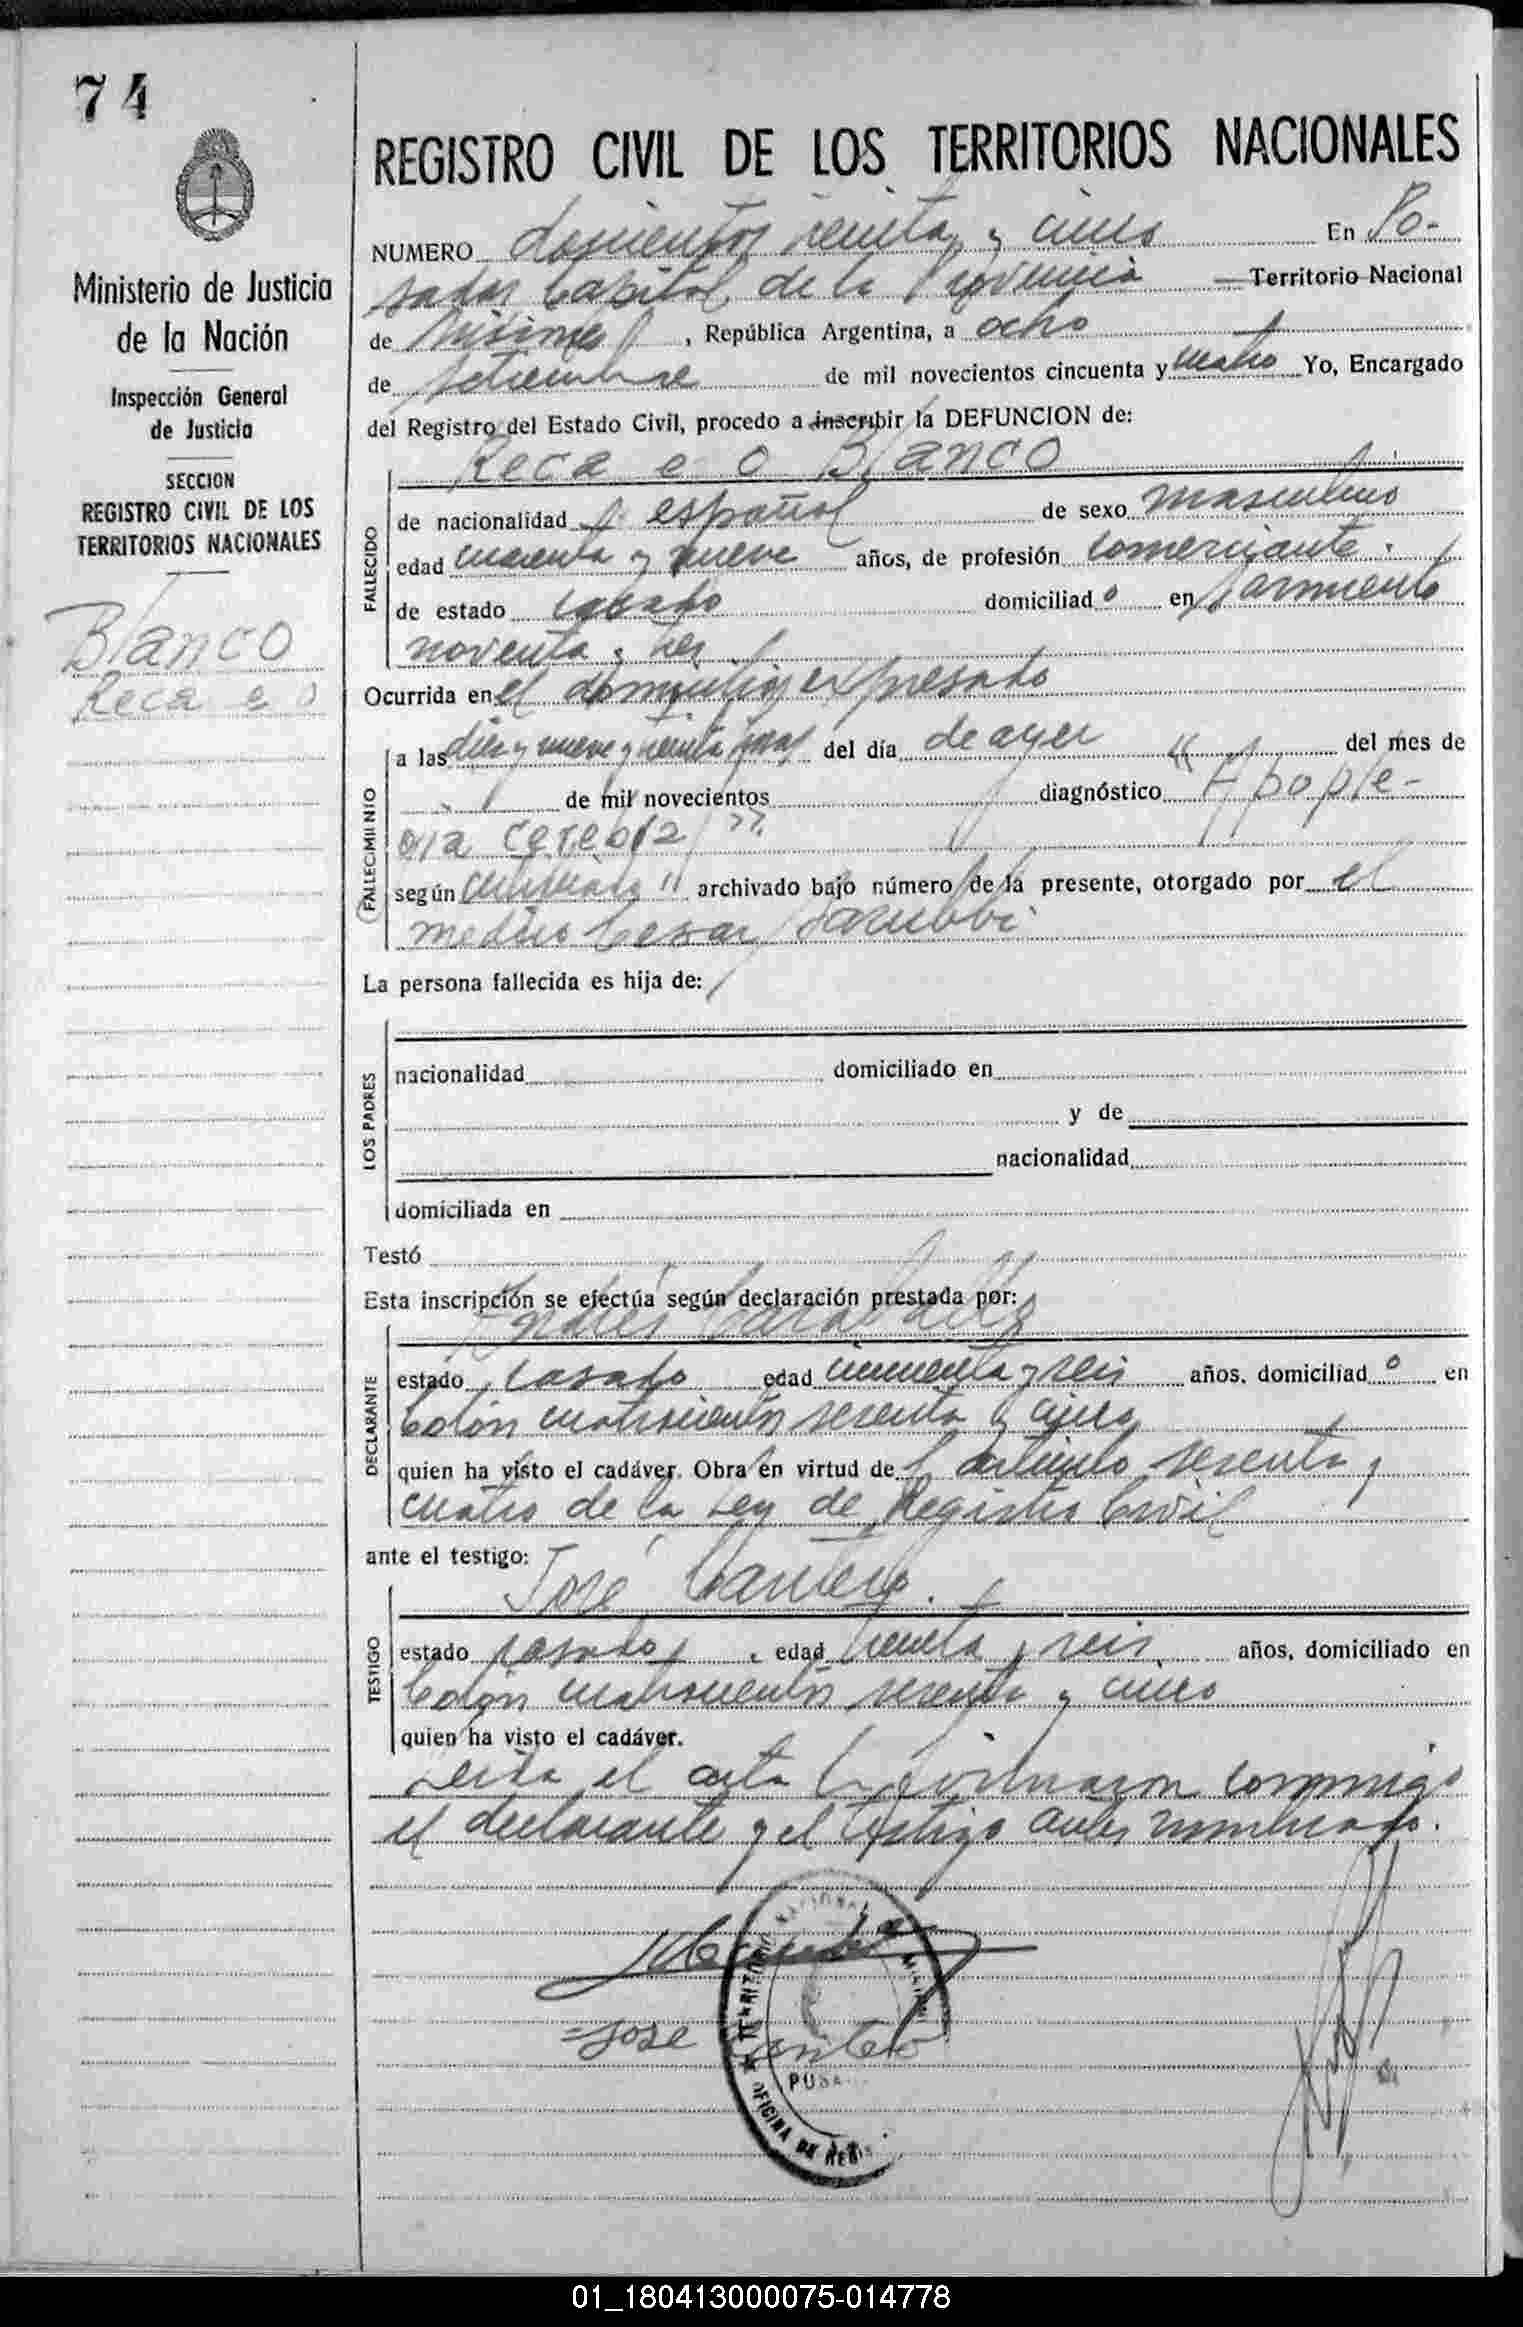 74
REGISTRO CIVIL DE LOS TERRITORIOS NACIONALES
Ministerio de Justicia
de la Nación
Inspección General
de Justicia
SECCION
REGISTRO CIVIL DE LOS
TERRITORIOS NACIONALES
Blanco
NUMERO doscientos treinta y cinco En Po-
sadas Capital de la Provincia Territorio Nacional
de Misiones, República Argentina, a ocho
de setiembre de mil novecientos cincuenta y cuatro Yo, Encargado
del Registro del Estado Civil, procedo a inscribir la DEFUNCION de:
Blanco
FALLECIDO
de nacionalidad español de sexo masculino
edad cuarenta y nueve años, de profesión comerciante.
de estado casado domiciliado en Sarmiento
noventa y tres
Ocurrida en el domicilio expresado
FALLECIMIENTO
a las diez y nueve y treinta horas del día de ayer del mes de
de mil novecientos diagnóstico "Apople-
gía cerebral"
según certificado archivado bajo número de la presente, otorgado por el
medico Cesar
La persona fallecida es hija de:
LOS PADRES
nacionalidad domiciliado en
y de
nacionalidad
domiciliada en
Testó
Esta inscripción se efectúa según declaración prestada por:
Andrés
DECLARANTE
estado casado edad cincuenta y seis años, domiciliado en
Colón cuatrocientos sesenta y cinco
quien ha visto el cadáver. Obra en virtud del artículo sesenta y
cuatro de la Ley de Registro Civil
ante el testigo:
José Cantero.
TESTIGO
estado casado, edad treinta y seis años, domiciliado en
Colón cuatrocientos sesenta y cinco
quien ha visto el cadáver.
Leida el acta la firmaron conmigo
el declarante y el testigo antes nombrado.
=Jose Cantero
OFICINA DE REGIS
01_180413000075-014778